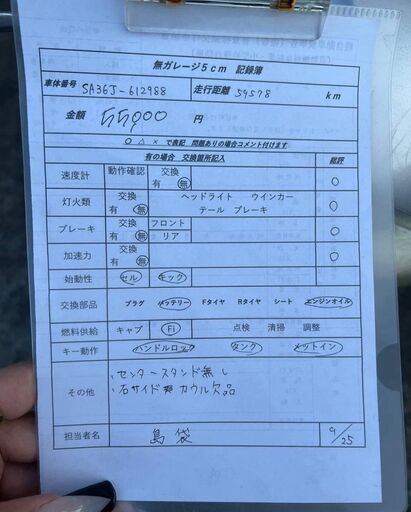 無ガレージ5cm 記録簿
車体番号 SA36J-612988 走行距離 59578 km
金額 55,000 円
○ △ × で表記 問題ありの場合コメント付けます
有の場合 交換箇所記入 総評
速度計 動作確認 交換 有 無 ○
灯火類 交換 有 無 ヘッドライト ウインカー テール ブレーキ ○
ブレーキ 交換 有 無 フロント リア ○
加速力 交換 有 無 ○
始動性 セル キック
交換部品 プラグ バッテリー Fタイヤ Rタイヤ シート エンジンオイル
燃料供給 キャブ Fi 点検 清掃 調整
キー動作 ハンドルロック タンク メットイン
その他 ・センタースタンド無し
・右サイド カウル欠品
担当者名 島袋 9/25